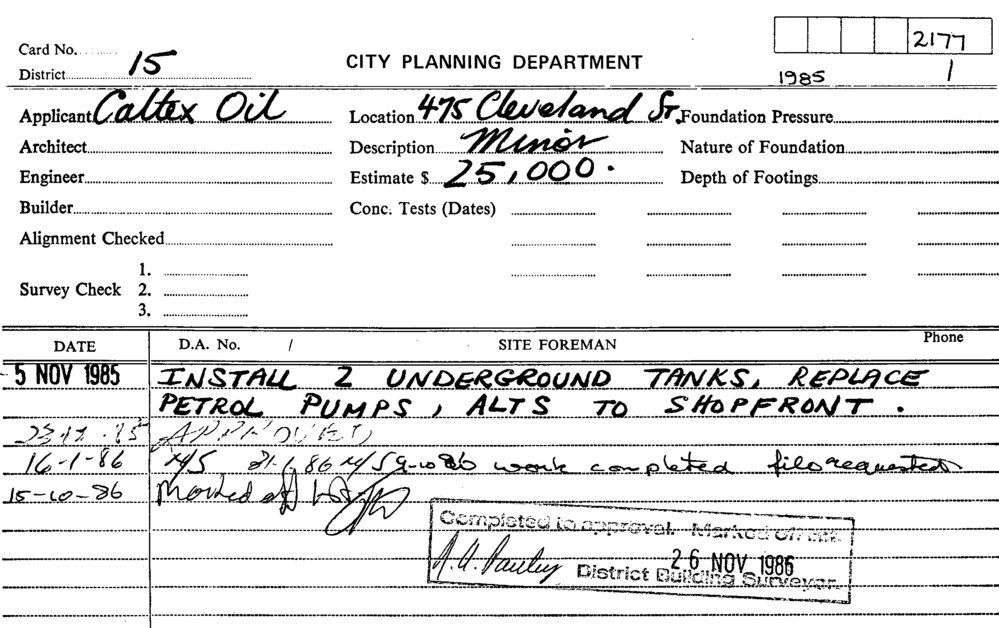 2177
Card No.
District 15
CITY PLANNING DEPARTMENT
1985 1
Applicant Caltex Oil Location 475 Cleveland St. Foundation Pressure
Architect Description Minor Nature of Foundation
Engineer Estimate $ 25,000. Depth of Footings
Builder Conc. Tests (Dates)
Alignment Checked
1.
Survey Check 2.
3.
DATE D.A. No. / SITE FOREMAN Phone
5 NOV 1985 INSTALL 2 UNDERGROUND TANKS, REPLACE
PETROL PUMPS, ALTS TO SHOPFRONT.
APPROVED
16-1-86 work completed file requested
15-10-86 Marked off
Completed to approval. Marked off
26 NOV 1986
District Building Surveyor